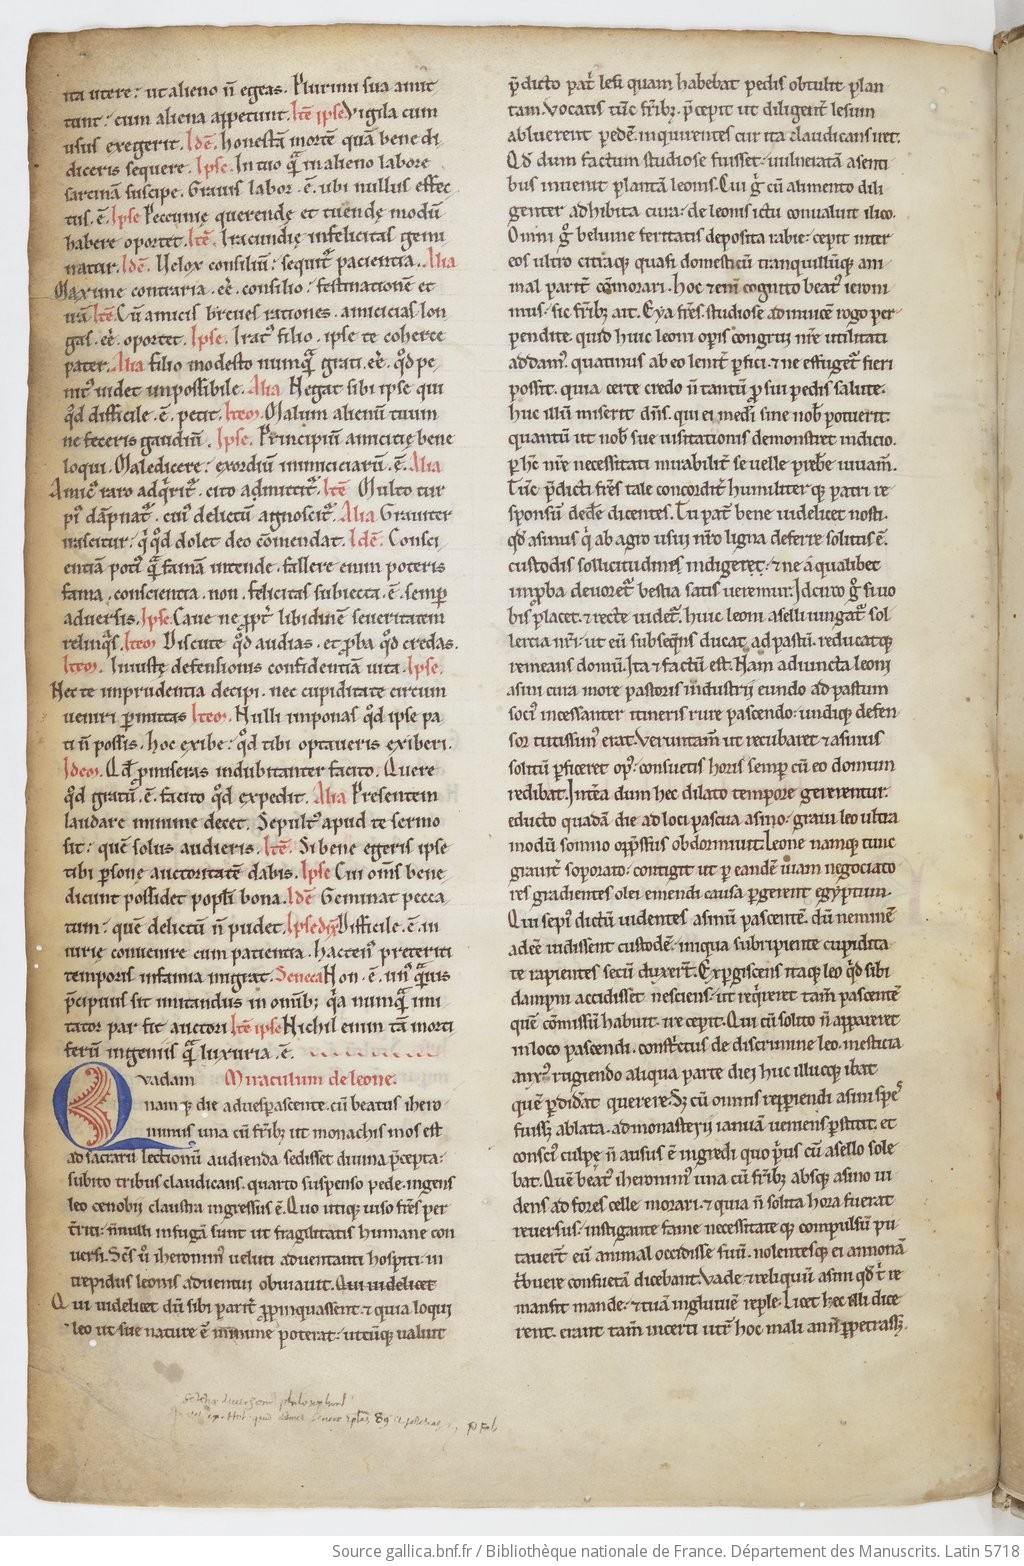 ita utere: ut alieno n̄ egeas. Plurimi sua amit
tunt: cum aliena appetunt. Itē ipse Vigila cum
usus exegerit. Idē. honestā mortē quā bene di
diceris sequere. Ipse. In tuo q̄ in alieno labore
sarcinā suscipe. Gravis labor .ē. ubi nullus effec
tus .ē. Ipse Peccunię querendę et tuendę modū
habere oportet. Itē. Iracundię infelicitas gemi
natur. Idē. Velox consiliū: sequit̄ pacientia. Alia
Maxime contraria .eē. consilio: festinationē et
irā Itē. Cū amicis breues rationes . amicicias lon
gas .eē. oportet. Ipse. Irat᾿ filio . ipse te coherce
pater. Alia filio modesto numq̄ grati .eē. q̊d pe
nit᾿ uidet impossibile. Alia Negat sibi ipse qui
q̊d difficile .ē. petit. Item. Malum alienū tuum
ne feceris gaudiū. Ipse. Principiū amicicię bene
loqui. Maledicere: exordiū inimiciciarū .ē. Alia
Amic᾿ raro adq̇rit̄ . cito admittit̄. Itē Multo tur
pi᾿ dāpnat̄ . cui᾿ delictū agnoscit̄. Alia Grauiter
irascitur: q̇ q̊d dolet deo cōmendat. Idē. Consci
entiā poti᾿ q̄ famā intende . fallere enim poteris
fama . conscientia . non . felicitas subiecta .ē. semp̄
aduersis. Ipse. Caue ne ꝓpt̄ libidinē seueritatem
relinq̇s. Item Discute q̊d audias . et ꝓba q̊d credas.
Item. Iniustę defensionis confidentiā uita. Ipse.
Nec te imprudentia decipi . nec cupiditate circum
ueniri ꝑmittas Item. Nulli imponas q̊d ipse pa
ti n̄ possis . hoc exibe: q̊d tibi optaueris exiberi.
Idem. Qd̄ ꝓmiseras indubitanter facito. Quere
q̊d gratū .ē. facito q̊d expedit. Alia Presentem
laudare minime decet. Sepult᾿ apud te sermo
sit: quē solus audieris. Itē. Si bene egeris ipse
tibi ꝑsonę auctoritatē dabis. Ipse Cui om̄s bene
dicunt possidet popl̄i bona. Idē Geminat pecca
tum: quē delictū n̄ pudet. Ipse dix̄ Difficile .ē. in
iurię conuenire cum patientia . hacten᾿ preteriti
temporis infamia migrat. Seneca Non .ē. un᾿ q̄uis
p̄cipuus sit imitandus in omib; q̇a numq̄ imi
tator par fit auctori Itē ipse Nichil enim tā morti
ferū ingeniis q̄ luxuria .ē.
Quadam Miraculum de leone.
namq; die aduesꝑascente . cū beatus ihero
nimus una cū fr̄ib; ut monachis mos est
ad sacrarū lectionū audienda sedisset diuina p̄cepta:
subito tribus claudicans . quarto suspenso pede . ingens
leo cenobij claustra ingressus ē. Quo utique uiso fr̄es per
t̄riti: n̄nulli in fugā sunt ut fragilitatis humane con
uersi. Sc̄s u̇ iheronim᾿ veluti aduentanti hospiti . in
trepidus leonis aduentui obuiauit. Qui uidelicet
Qui uidelicet dū sibi parit̄ ꝓpinquassent . ⁊ quia loqui
leo ut sue nature ē minime poterat: utcūq; ualuit
p̄dicto pat̄ lesū quam habebat pedis obtulit plan
tam. Vocatis tūc fr̄ib; p̄cepit ut diligent̄ lesum
abluerent pedē . inquirentes cur ita claudicans iret.
Qd̄ dum factum studiose fuisset: uulneratā a senti
bus inuenit plantā leonis. Cui g̊ cū alimento dili
genter adhibita cura: de leonis ictu conualuit ilico.
Omni g̊ beluine feritatis deposita rabie: cepit inter
eos ultro citraq; quasi domesticū tranquillūq; ani
mal parit̄ cōmorari . hoc etenī cognito beat᾿ ieroni
mus: sic fr̄ib; ait. Eya fr̄es . studiose ad inuicē rogo per
pendite . quid huic leoni opis congrui nr̄e utilitati
addam᾿ . quatinus ab eo lenit̄ ꝑfici . ⁊ ne effuget̄ fieri
possit . quia certe credo n̄ tantū ꝓ sui pedis salute.
huc illū miserit dn̄s . qui ei mederi sine nob᾿ potuerit:
quantū ut nob᾿ sue uisitationis demonstret indicio.
ꝑ hc̄ nr̄e necessitati mirabilit̄ se uelle prebe᾿ iuuam̄.
Tūc p̄dicti fr̄es tale concordit̄ humiliterq; patri re
sponsū dede dicentes. Tu pat̄ bene uidelicet nosti.
qd̄ asinus q̇ ab agro usui nr̄o ligna deferre solitus ē.
custodis sollicitudines indigeret: ⁊ ne a qualibet
imꝓba deuoret̄ bestia satis ueremur. Idcirco g̊ si uo
bis placet . ⁊ recte uidet̄ . huic leoni aselli iungat̄ sol
lercia nr̄i: ut eū subseq̄ns ducat ad pastū . reducatq;
remeans domū. Ita ⁊ factū est. Nam adiuncta leoni
asini cura more pastoris industrij eundo ad pastum
soci᾿ incessanter itineris rure pascendo: undiq; defen
sor tutissim᾿ erat. Verumtam̄ ut recubaret ⁊ asinus
solitū ꝑficeret op᾿: consuetis horis semp̄ cū eo domum
redibat. Int̄ea dum hec dilato tempore gererentur:
educto quadā die ad loci pascua asino: graui leo ultra
modū somno opp̄ssus obdormiuit. Leone namq; tunc
grauit̄ soporato: contigit ut ꝑ eandē uiam negociato
res gradientes olei emendi causa ꝑgerent egyptum.
Qui sepi᾿ dictū uidentes asinū pascentē . dū neminē
adeē uidissent custodē . iniqua subripiente cupidita
te rapientes secū duxer̄t. Exꝑgiscens itaq; leo q̊d sibi
dampni accidisset nesciens: ut req̇reret tam̄ pascentē
quē cōmissū habuit . ire cepit. Qui cū solito n̄ appareret
in loco pascendi . const̄ctus de discrimine leo . mesticia
anxi᾿ rugiendo aliqua parte diei huc illucq; ibat
quē ꝑdidāt querere. S; cū omnis repp̄iendi asini spe᾿
fuiss; ablata . ad monasterij ianuā ueniens ꝑstitit . et
consci᾿ culpę n̄ ausus ē ingredi quo ṗus cū asello sole
bat. Quē beat᾿ iheronim᾿ una cū fr̄ib; absq; asino ui
dens ad fores celle morari . ⁊ quia n̄ solita hora fuerat
reuersus . instigante fame necessitateq; compulsū pu
tauert̄ eū animal occidisse suū . nolentesq; ei annonā
t̄buere consuetā dicebant. Vade ⁊ reliquū asini qd̄ t̄ re
mansit mande: ⁊ tuā ingluuiē reple. Licet hec illi dice
rent . erant tam̄ incerti utr̄ hoc mali anī ꝑpetrass;
Source gallica.bnf.fr / Bibliothèque nationale de France. Département des Manuscrits. Latin 5718